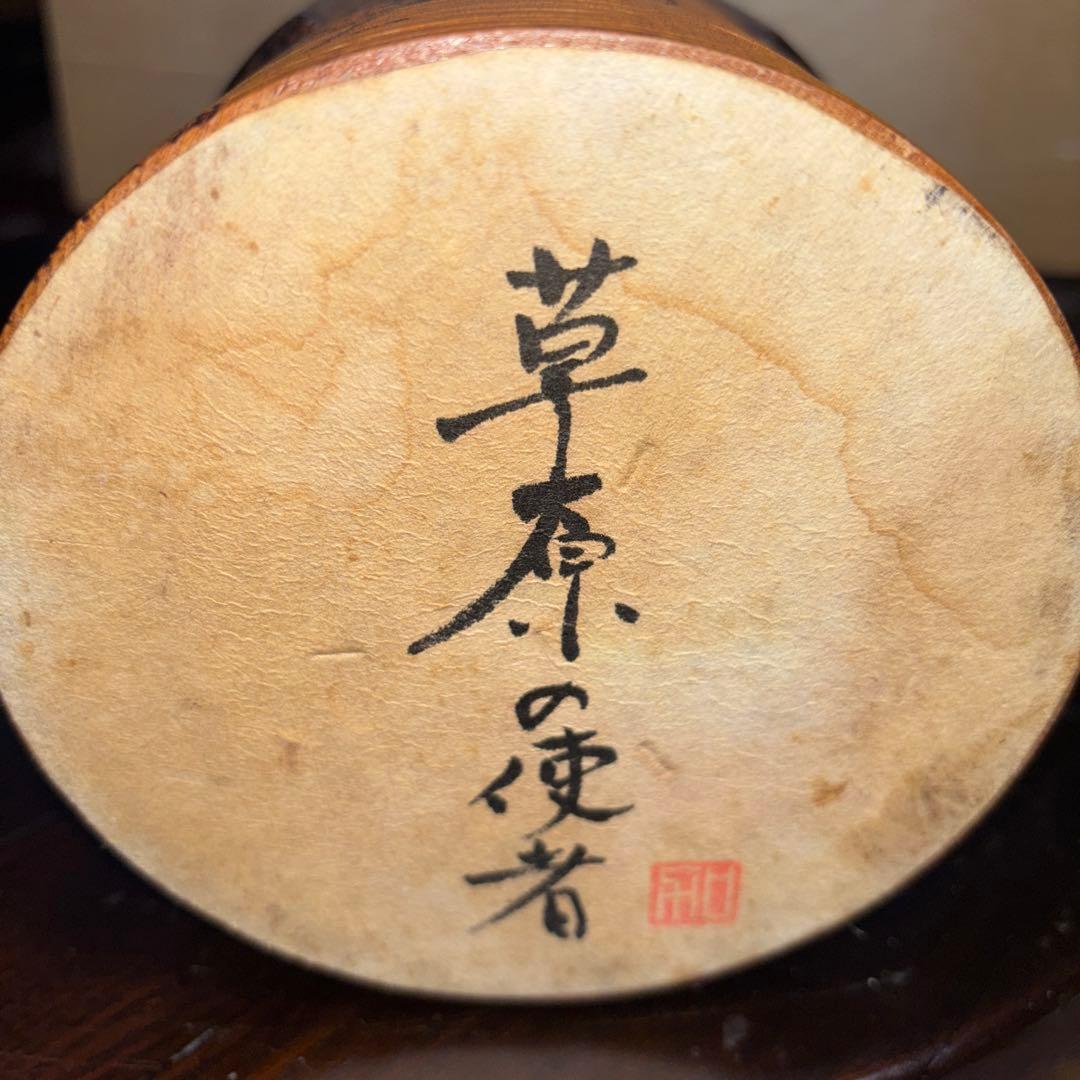 草原の使者